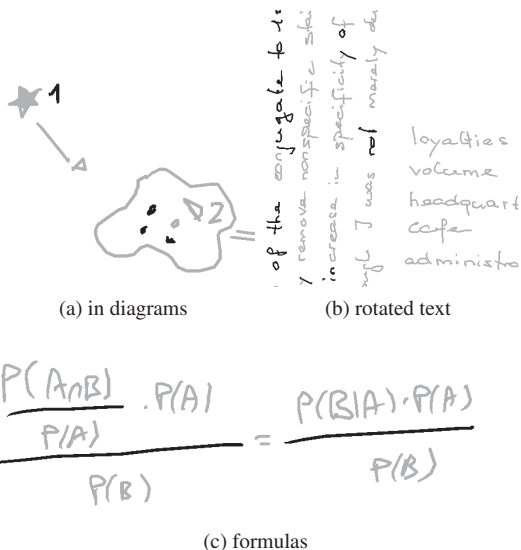 1
2
of the conjugate to
remove nonspecific
increase in specificity of
I was not merely
loyalties
volume
headquart
cafe
administra
(a) in diagrams
(b) rotated text
P(A∩B)
P(A)
· P(A)
P(B)
=
P(B|A) · P(A)
P(B)
(c) formulas